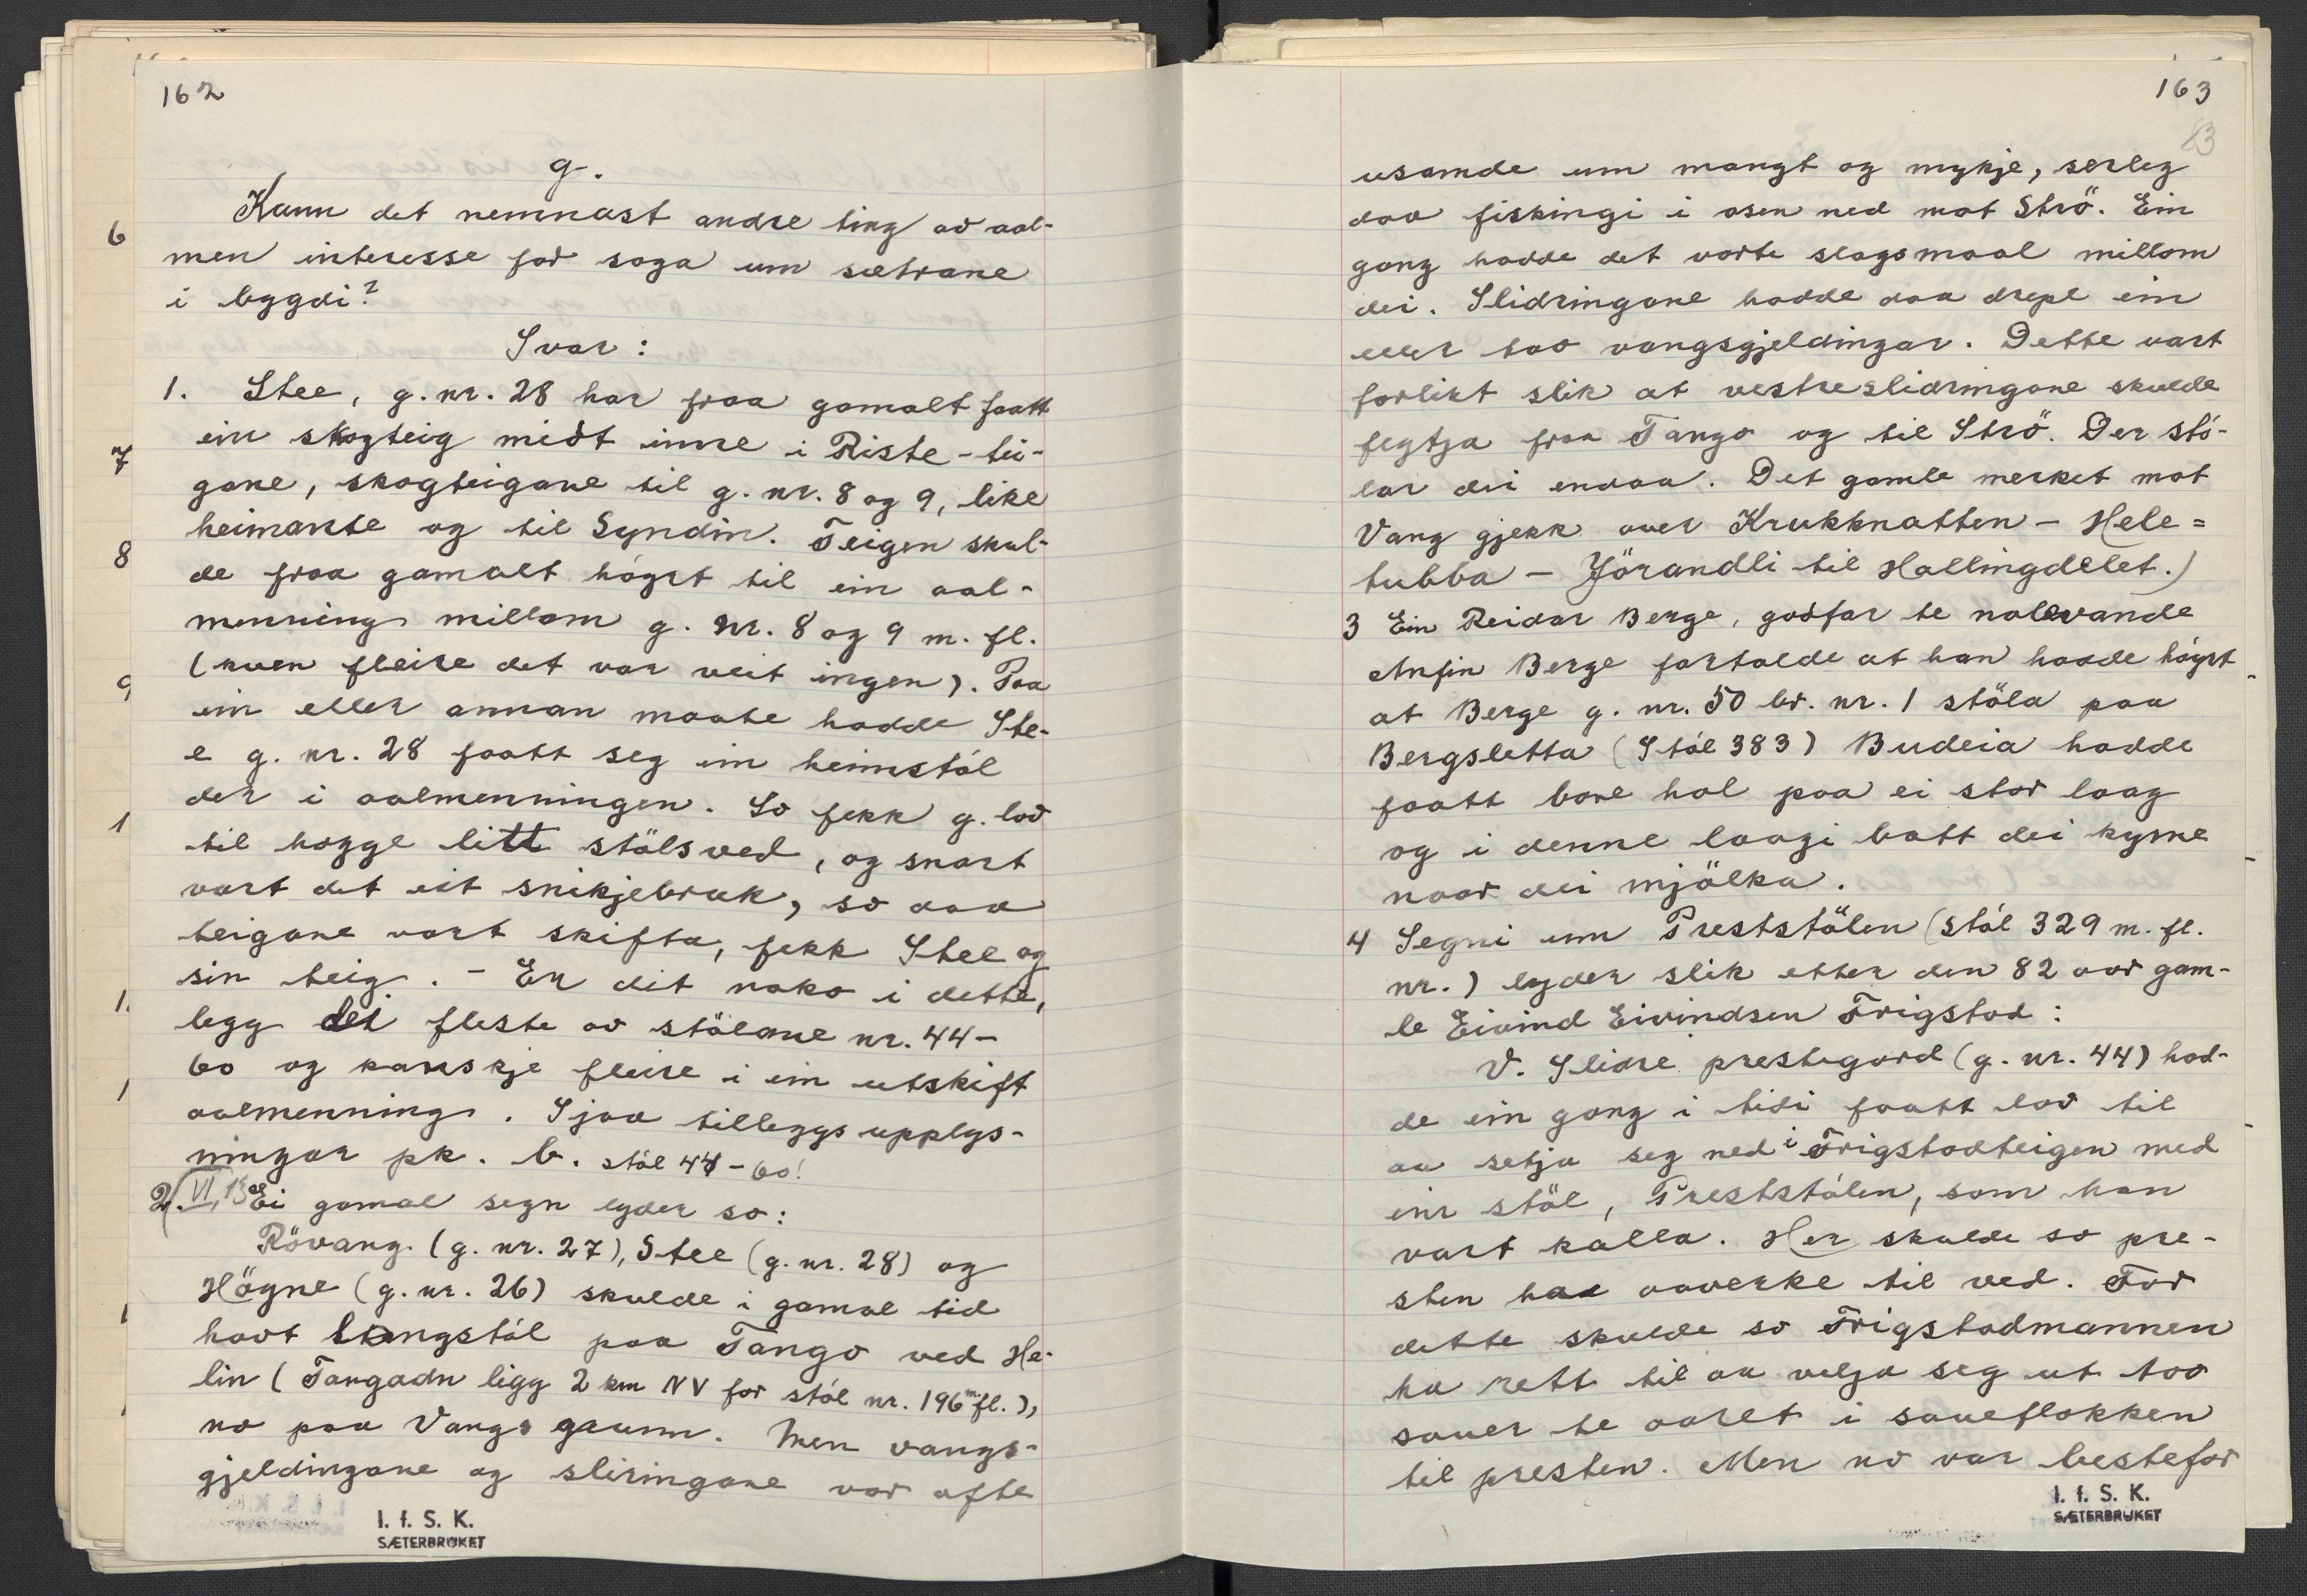 162
g.
Kann det nemnast andre ting av aal-
men interesse for soga um sætrane
i bygdi?
Svar:
1. Stee, g. nr. 28 har fraa gamalt faatt
ein skogteig midt inne i Riste-tei-
gane, skogteigane til g. nr. 8 og 9, like
heimante og til Syndin. Teigen skul-
de fraa gamalt høyrt til ein aal-
menning millom g. nr. 8 og 9 m. fl.
(kven fleire det var veit ingen). Paa
ein eller annan maate hadde Ste-
e g. nr. 28 faatt seg ein heimstöl
der i aalmenningen. So fekk g. lov
til hogge litt stölsved, og snart
vart det eit snikjebruk, so daa
teigane vart skifta, fekk Stee og
sin teig. - Er dit noko i dette,
legg dei fleste av stölane nr. 44-
60 og kanskje fleire i ein utskift
aalmenning. Sjaa tilleggsupplys-
ningar pk. b. stöl 44-60!
2. VI, 13 Ei gamal segn lyder so:
Rövang (g. nr. 27), Stee (g. nr. 28) og
Högne (g. nr. 26) skulde i gamal tid
havt langstöl paa Tango ved He-
lin (Tangadn ligg 2 km NV for stöl nr. 196 m. fl.),
no paa Vangs grunn. Men vangs-
gjeldingane og sliringane var ofte
I. f. S. K.
SÆTERBRUKET
163
83
usamde um mangt og mykje, serleg
daa fiskingi i osen ned mot Strö. Ein
gong hadde det vorte slagsmaal millom
dei. Slidringane hadde daa drepe ein
eller tvo vangsgjeldingar. Dette vart
forlikt slik at vestreslidringane skulde
flytja fraa Tango og til Strö. Der stö-
lar dei endaa. Det gamle merket mot
Vang gjekk over Krukknatten - Hele=
tubba - Jörandli til Hallingdelet.)
3 Ein Reidar Berge, godfar te nolevande
Anfin Berge fortalde at han hadde höyrt
at Berge g. nr. 50 br. nr. 1 stöla paa
Bergsletta (Stöl 383) Budeia hadde
faatt bore hol paa ei stor laag
og i denne laagi batt dei kyrne
naar dei mjölka.
4 Segni um Preststölen (stöl 329 m. fl.
nr.) lyder slik etter den 82 aar gam-
le Eivind Eivindsen Trigstad:
V. Slidre prestegard (g. nr. 44) had-
de ein gong i tidi faatt lov til
aa setja seg ned i Trigstadteigen med
ein stöl, Preststölen, som han
vart kalla. Her skulde so pre-
sten ha aaverke til ved. For
dette skulde so Trigstadmannen
ha rett til aa velja seg ut tvo
sauer te aaret i saueflokken
til presten. Men no var bestefar
I. f. S. K.
SÆTERBRUKET